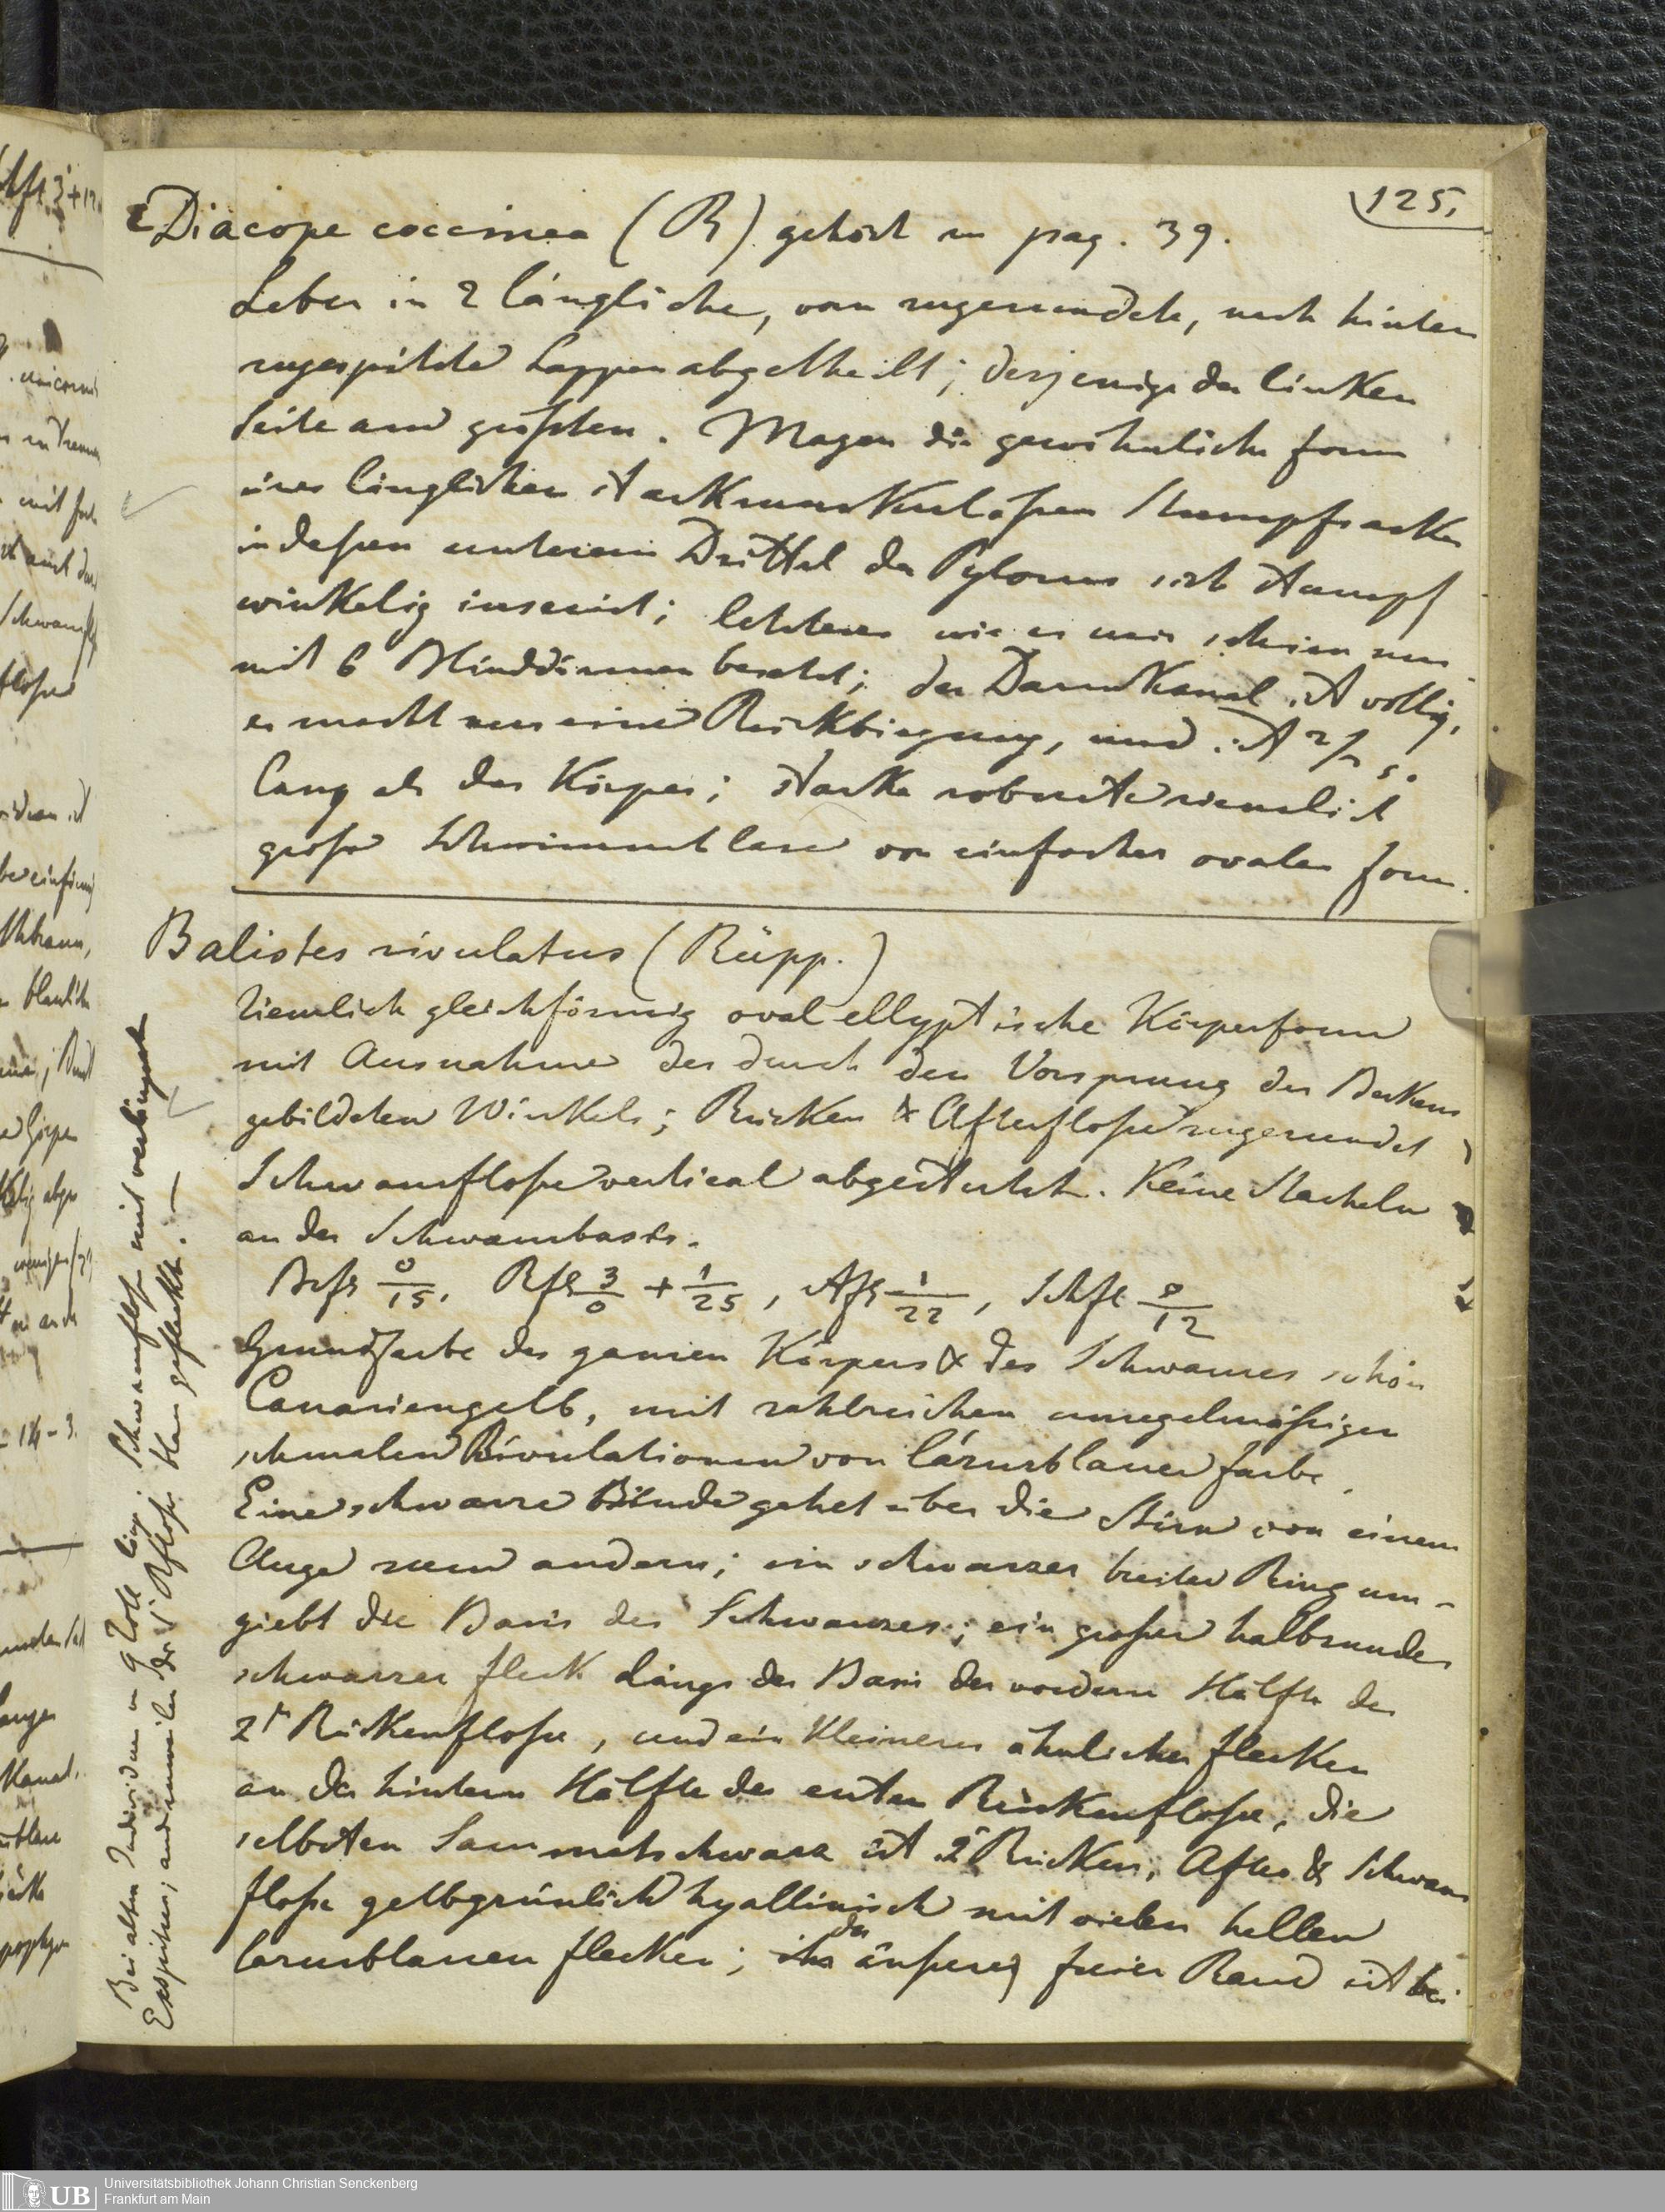 125.
Diacope coccinea (R) gehört zu pag. 39.
Leber in 2 längliche, vorn zugerundete, nach hinten
zugespitzte Lappen abgetheilt; derjenige der linken
Seite am größten. Magen die gewöhnliche form
eines länglichen stark muskulösen Stumpfsackes
in deßen unterem Drittel der Pylorus sich stumpf
winkelig inserirt; letzterer wie es mir schien nur
mit 6 Blinddärmen besetzt; der Darmkanal ist völlig,
er macht nur eine Rückbiegung, und ist 2/3 so
lang als der Körper; starke robuste ziemlich
große Schwimmblase von einfacher ovaler form.
Balistes rivulatus (Rüpp.)
Ziemlich gleichförmig oval ellyptische Körperform
mit Ausnahme des durch den Vorsprung des Beckens
gebildeten Winkels; Rücken & Afterfloße zugerundet
Schwanzfloße vertical abgestutzt. Keine Stacheln
an der Schwanzbasis.
Brfl 0/15, Rfl 3/0 + 1/25, Afl 1/22, Schfl 0/12
Grundfarbe des ganzen Körpers & des Schwanzes schön
Canariengelb, mit zahlreichen unregelmäßigen
schmalen Rivulationen von lázurblauer farbe.
Eine schwarze Binde gehet über die Stirn von einem
Auge zum andern; ein schwarzer breiter Ring um-
giebt die Basis des Schwanzes; ein großer halbrunder
schwarzer fleck längs der Basis der vordern Hälfte der
2t Rückenfloße, und ein kleinerer ähnlicher flecken
an der hintern Hälfte der ersten Rückenfloße, die
selbsten Sammetschwarz ist 2t Rücken, After & Schwanz
floße gelbgrünlich hyallinisch mit vielen hellen
lazurblauen flecken; der äußere freier Rand ist bei
Bei alten Individuen von 9 Zoll länge Schwanzfloße mit verlängerten
Eckspitzen; und zuweilen die 1t Rfloße blau gefleckt. —
Universitätsbibliothek Johann Christian Senckenberg
Frankfurt am Main
UB